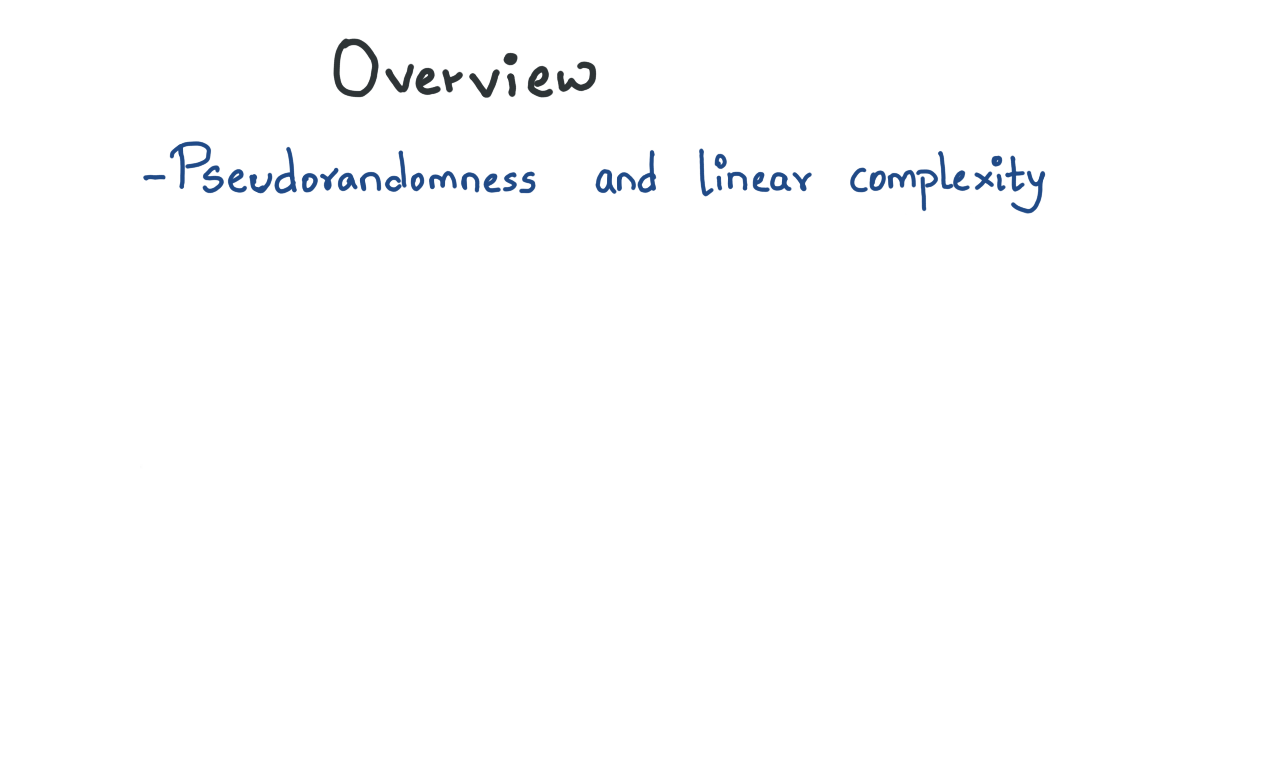 Overview
-Pseudorandomness and linear complexity